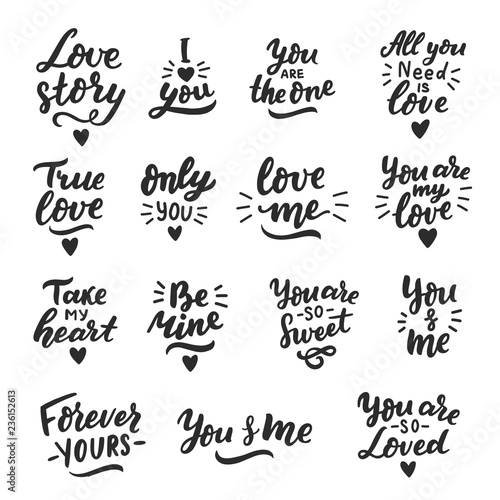 Love
story
I
♥
you
You
ARE
the one
All you
Need
IS
love
True
love
Only
YOU
love
me
You are
my
love
Take
MY
heart
Be
Mine
You are
SO
Sweet
You
&
me
Forever
YOURS
You & Me
You are
SO
Loved
Adobe Stock | #236152613